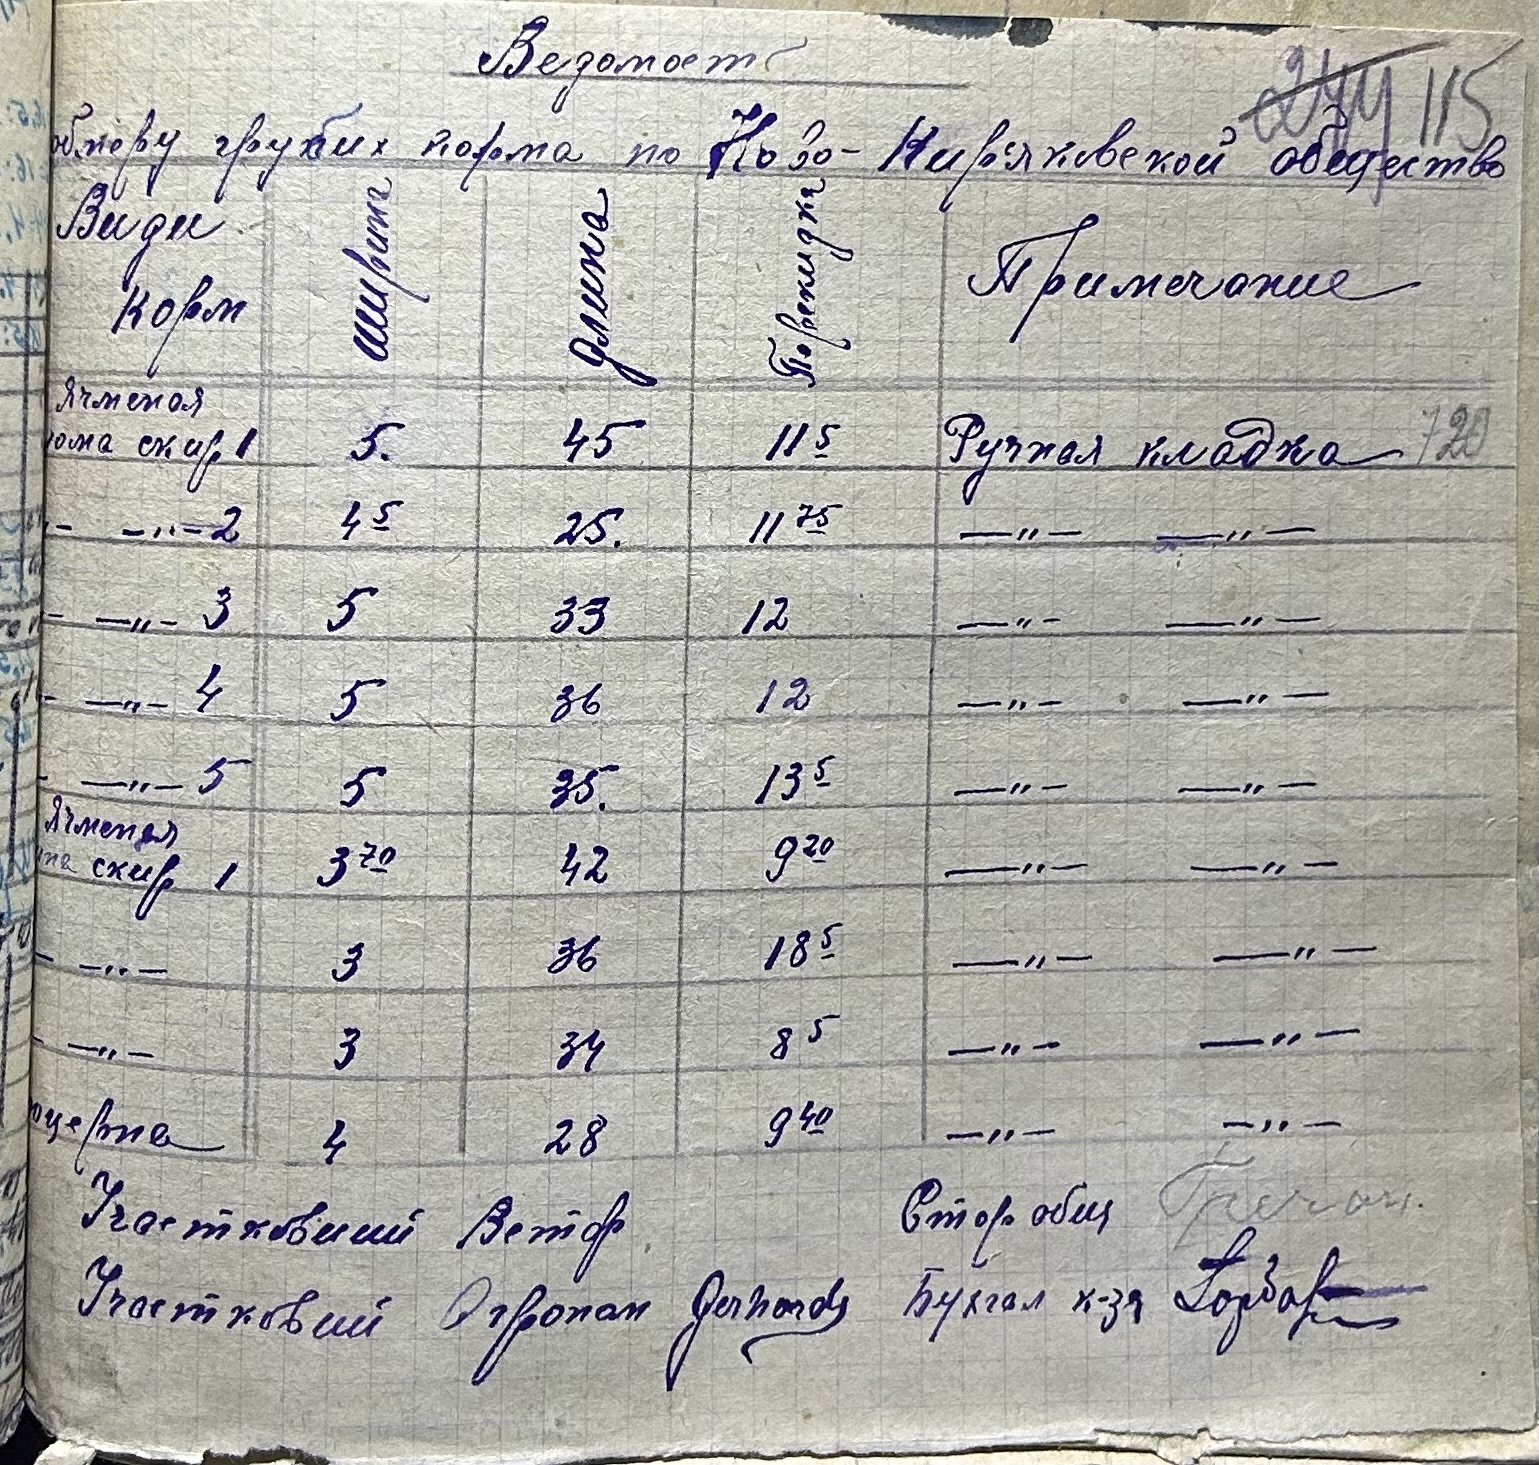 Ведомость
244 115
обмеру грубих корма по Ново-Киряковской общество
Види Корм | ширина | длина | Перекидка | Примечание
Ячменая
лома скир 1 | 5. | 45 | 11 5 | Ручная кладка 720
-„- 2 | 4 5 | 25. | 11 75 | —„— —„—
-„- 3 | 5 | 33 | 12 | —„— —„—
-„- 4 | 5 | 36 | 12 | —„— —„—
-„- 5 | 5 | 35. | 13 5 | —„— —„—
Ячменая
на скир 1 | 3 70 | 42 | 9 20 | —„— —„—
-„- | 3 | 36 | 18 5 | —„— —„—
-„- | 3 | 34 | 8 5 | —„— —„—
юцерна | 4 | 28 | 9 40 | —„— —„—
Участковший Ветор Стор общ
Участковий Огроном Gerhards Бухгал к-зя